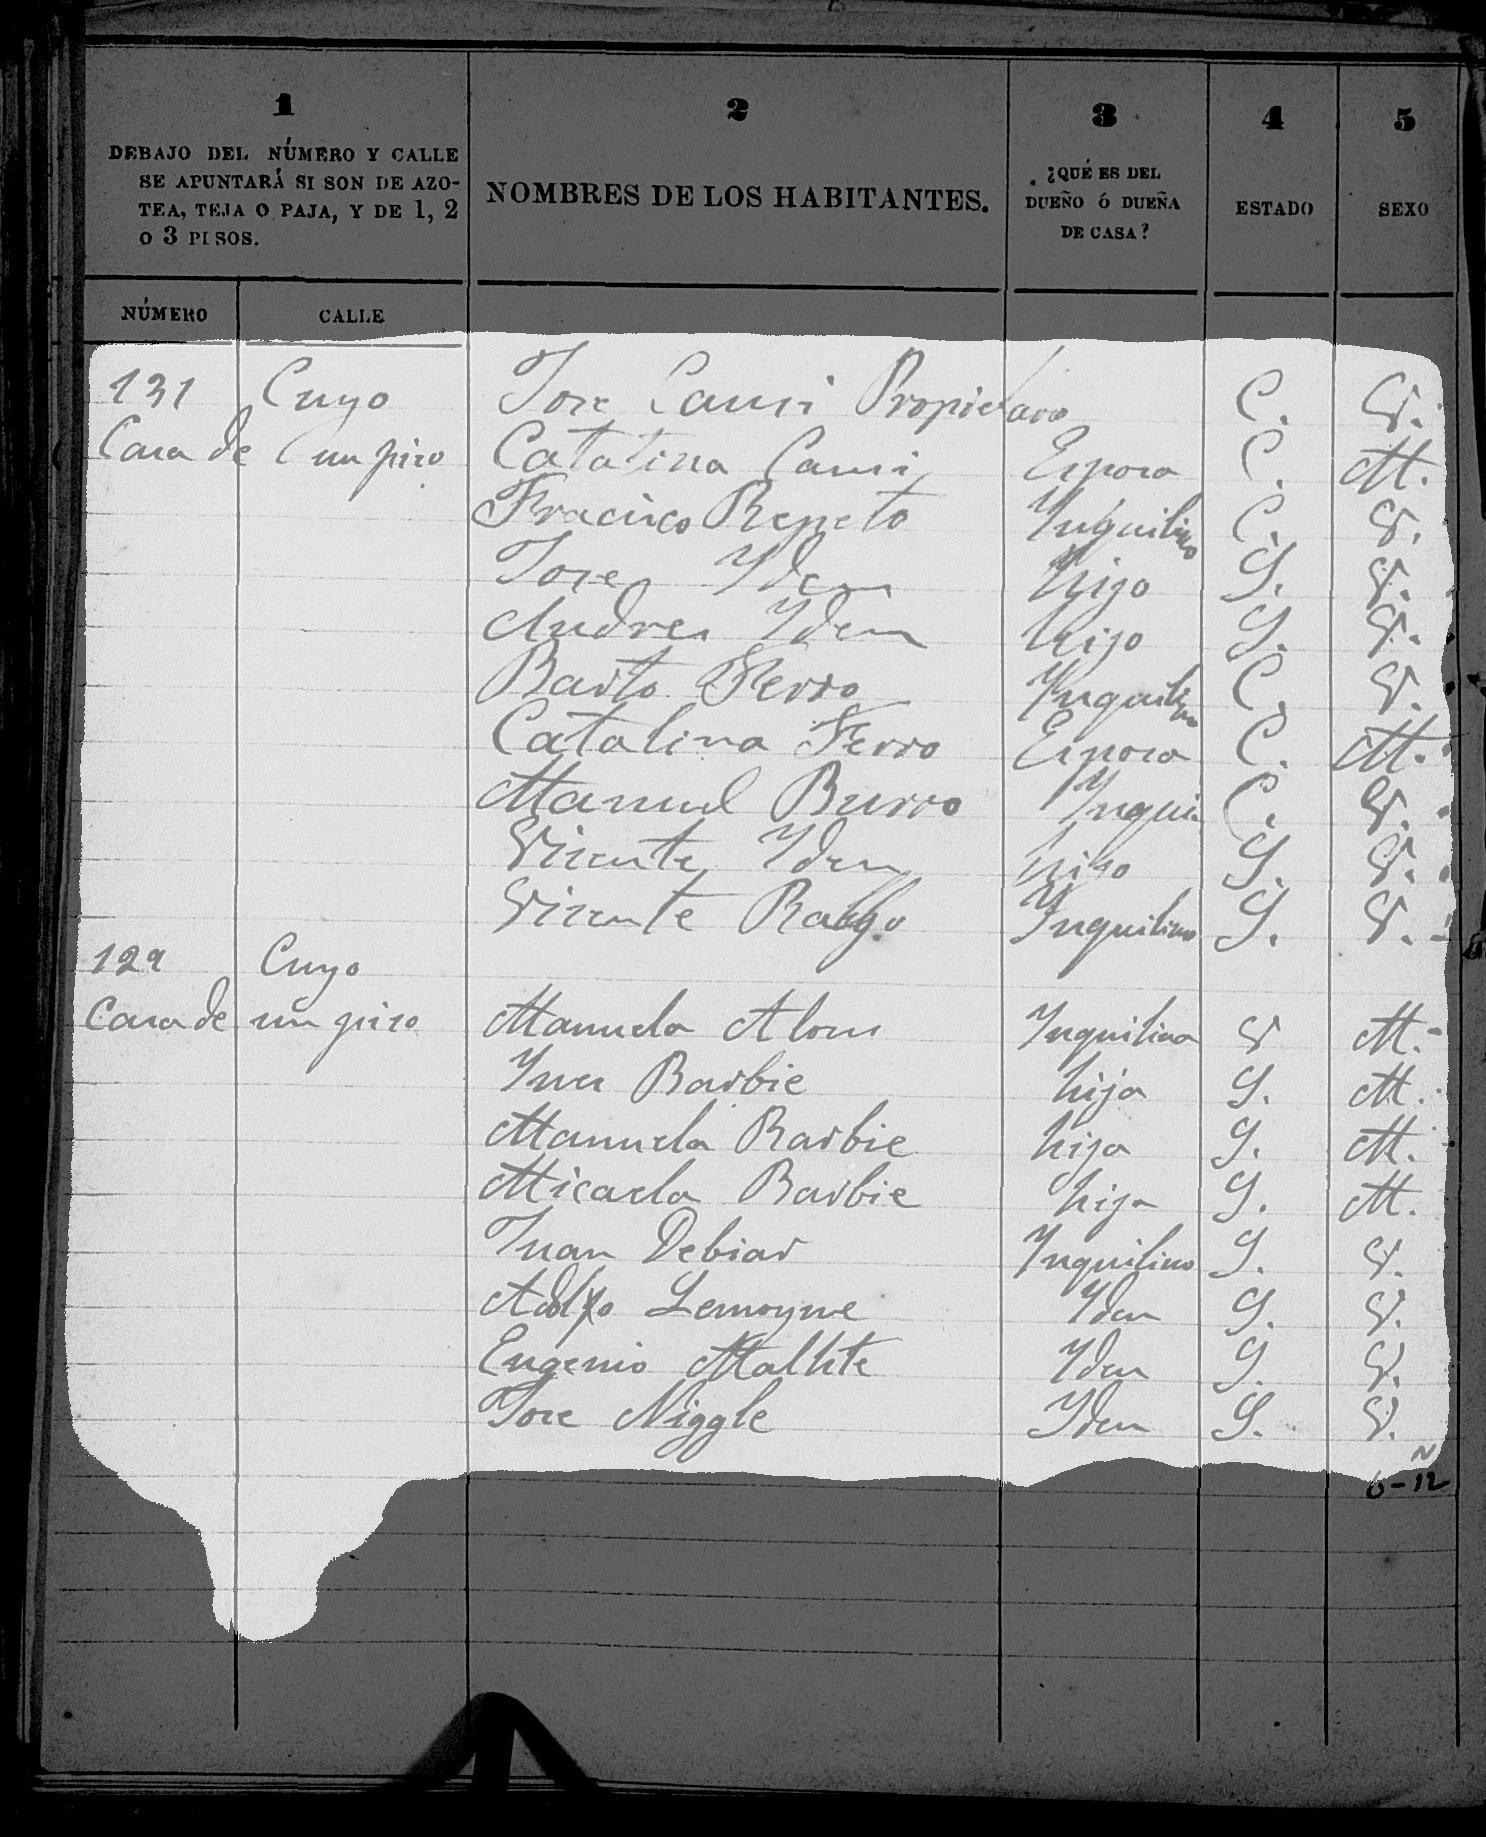 1 2 3 4 5
DEBAJO DEL NÚMERO Y CALLE
SE APUNTARÁ SI SON DE AZO-
TEA, TEJA O PAJA, Y DE 1, 2
O 3 PISOS.
NOMBRES DE LOS HABITANTES.
¿QUÉ ES DEL
DUEÑO Ó DUEÑA
DE CASA?
ESTADO
SEXO
NÚMERO CALLE
131 Cuyo Jose Propietario C. V.
Casa de un piso Catalina Esposa C. M.
Fracisco Repeto Ynquilino C. V.
Jose Ydem hijo S. V.
Andres Ydem hijo S. V.
Barto. Ferro Ynquilino C. V.
Catalina Ferro Esposa C. M.
Manuel Burro Ynqui C. V.
Vicente Ydem hijo S. V.
Vicente Ynquilino S. V.
129 Cuyo
Casa de un piso Manuela Ynquilina V M.
Ynes Barbie hija S. M.
Manuela Barbie hija S. M.
Micaela Barbie hija S. M.
Juan Debiar Ynquilino S. V.
Adolfo Lemoyne Yden S. V.
Eugenio Yden S. V.
Jose Niggle Yden S. V.
6-12